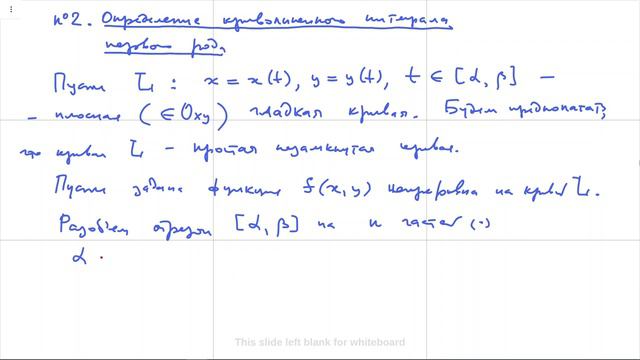 n°2. Определение криволинейного интеграла
первого рода
Пусть L : x = x(t), y = y(t), t ∈ [α, β] –
– плоская (∈ Oxy) гладкая кривая. Будем предполагать,
что кривая L – простая незамкнутая кривая.
Пусть задана функция f(x, y) непрерывна на кривой L.
Разобьем отрезок [α, β] на n частей (·)
α
This slide left blank for whiteboard